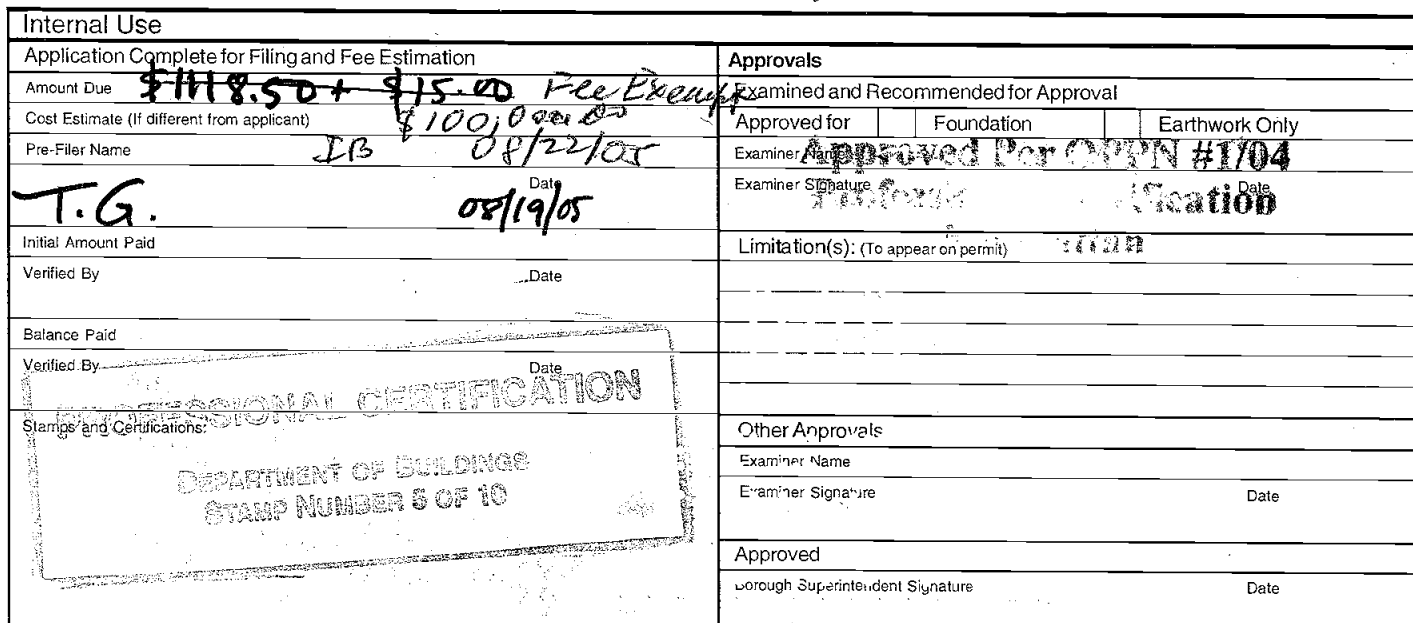 Internal Use
Application Complete for Filing and Fee Estimation
Amount Due $1118.50 + $15.00 Fee Exempt
Cost Estimate (If different from applicant) $100,000.00
Pre-Filer Name IB 08/22/05
Date
T.G. 08/19/05
Initial Amount Paid
Verified By Date
Balance Paid
Verified By Date
PROFESSIONAL CERTIFICATION
Stamps and Certifications:
DEPARTMENT OF BUILDINGS
STAMP NUMBER 5 OF 10
Approvals
Examined and Recommended for Approval
Approved for Foundation Earthwork Only
Examiner Name Approved Per OPPN #1/04
Examiner Signature Date
Limitation(s): (To appear on permit)
Other Approvals
Examiner Name
Examiner Signature Date
Approved
Borough Superintendent Signature Date